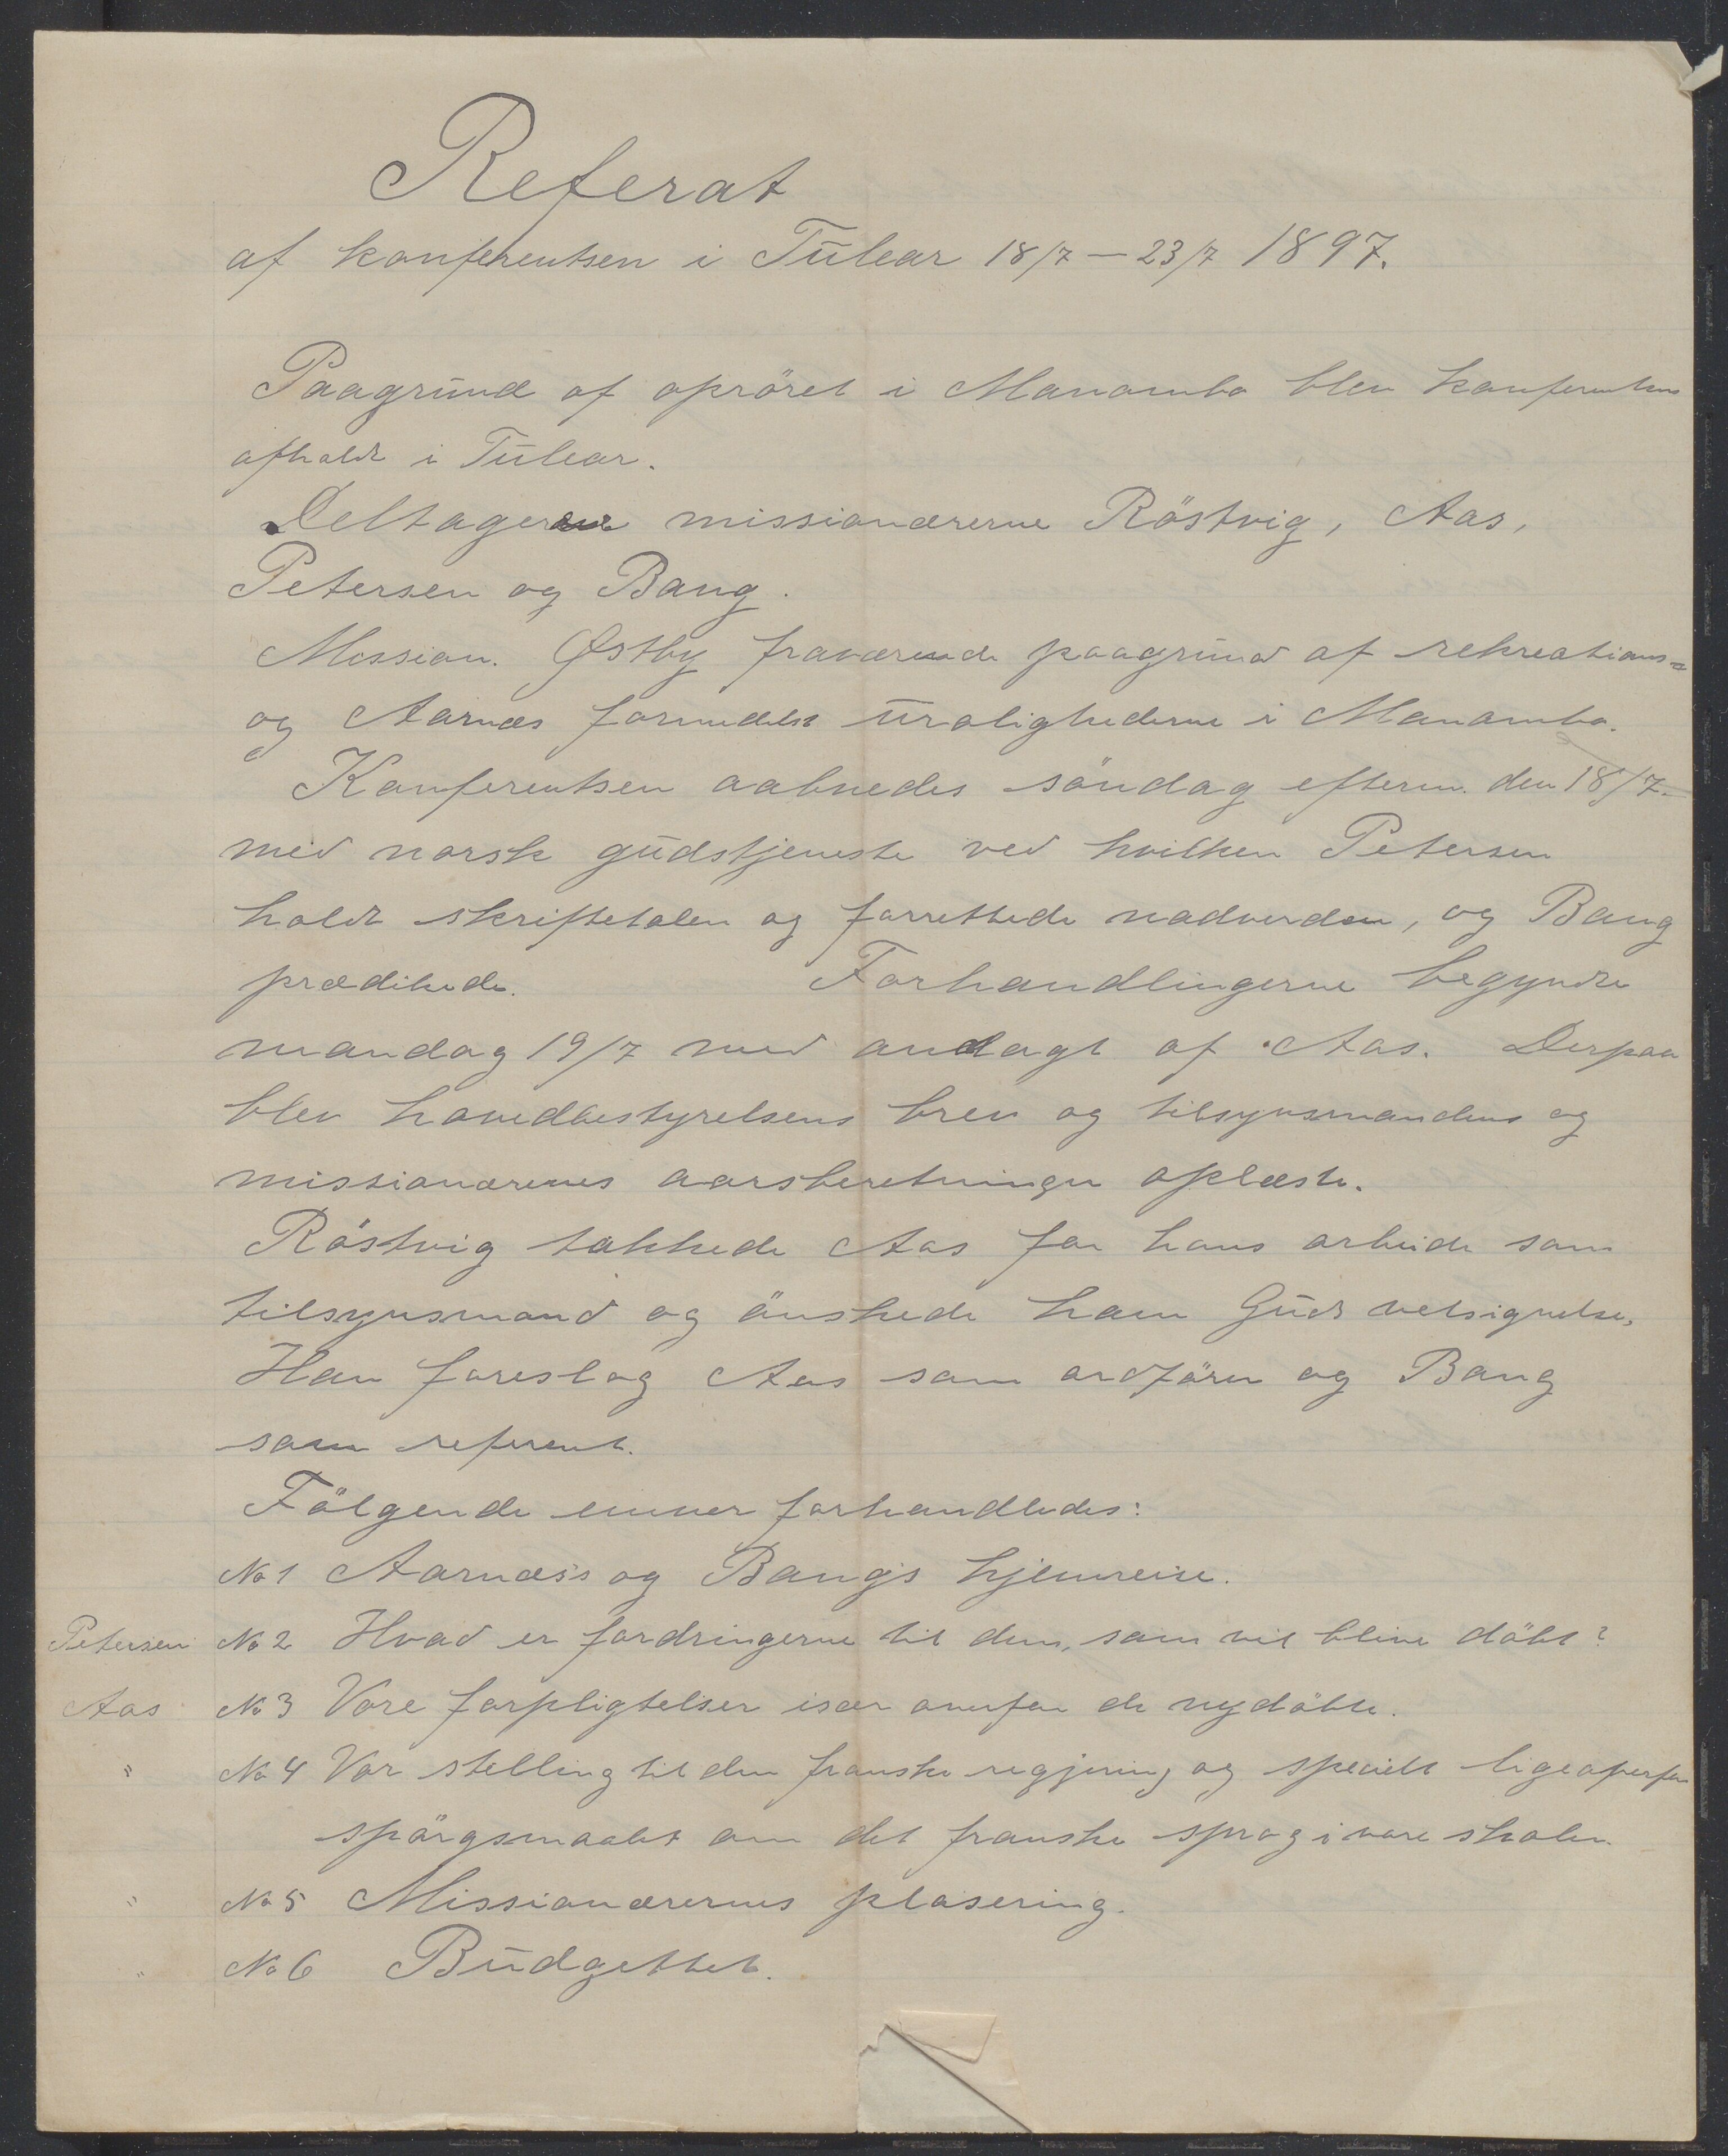 Referat
af konferentsen i Tulear 18/7 – 23/7 1897.
Paagrund af opröret i Manombo blev konferentsen
afholdt i Tulear.
Deltagere missionærerne Röstvig, Aas,
Petersen og Bang.
Mission. Østby fraværende paagrund af rekreations-
og Aarnes formedelst urolighederne i Manombo.
Konferentsen aabnedes söndag efterm. den 18/7
med norsk gudstjeneste ved hvilken Petersen
holdt skriftetalen og forrettede nadverden, og Bang
prædikede. Forhandlingerne begyndte
mandag 19/7 med andagt af Aas. Derpaa
blev hovedbestyrelsens brev og tilsynsmandens og
missionærenes aarsberetninger oplæste.
Röstvig takkede Aas for hans arbeide som
tilsynsmand og önskede ham Guds velsignelse.
Han foreslog Aas som ordförer og Bang
som referent.
Fölgende emner forhandledes:
No 1 Aarnæs's og Bang's hjemreise.
Petersen No 2 Hvad er fordringerne til dem, som vil blive döbt?
Aas No 3 Vore forpligtelser især overfor de nydöbte.
" No 4 Vor stelling til den franske regjering og specielt ligeoverfor
spörgsmaalet om det franske sprog i vore skoler.
" No 5 Missionærernes plasering.
" No 6 Budgettet.